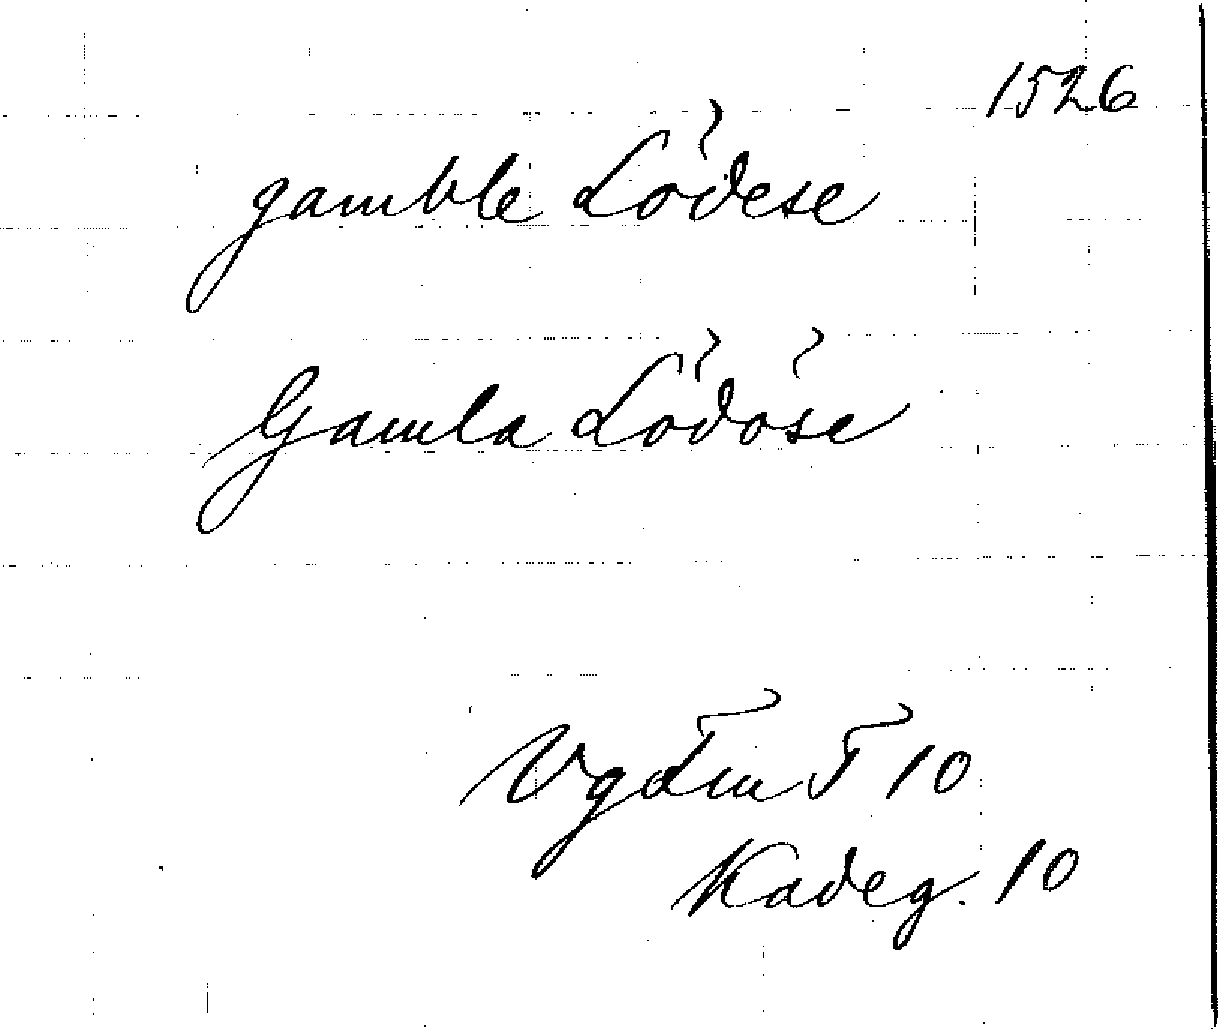 1526
gamble Lödese
Gamla Lödöse
10
Kadeg. 10